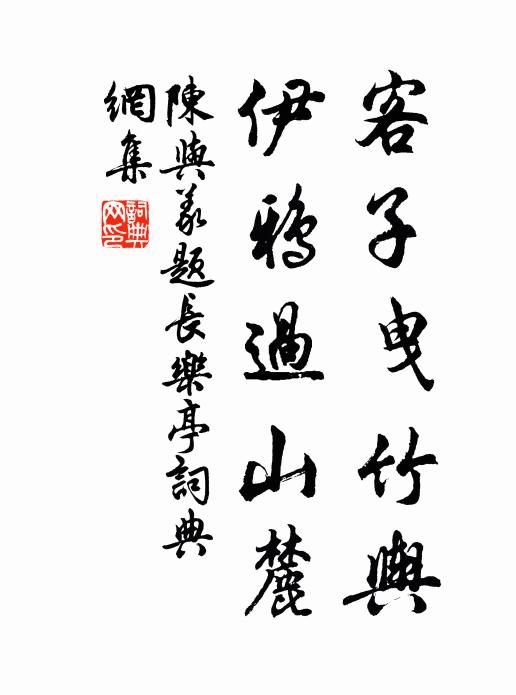 客子曳竹輿
伊鴉過山麓
陳與義題長樂亭詞典
網集
詞典網印